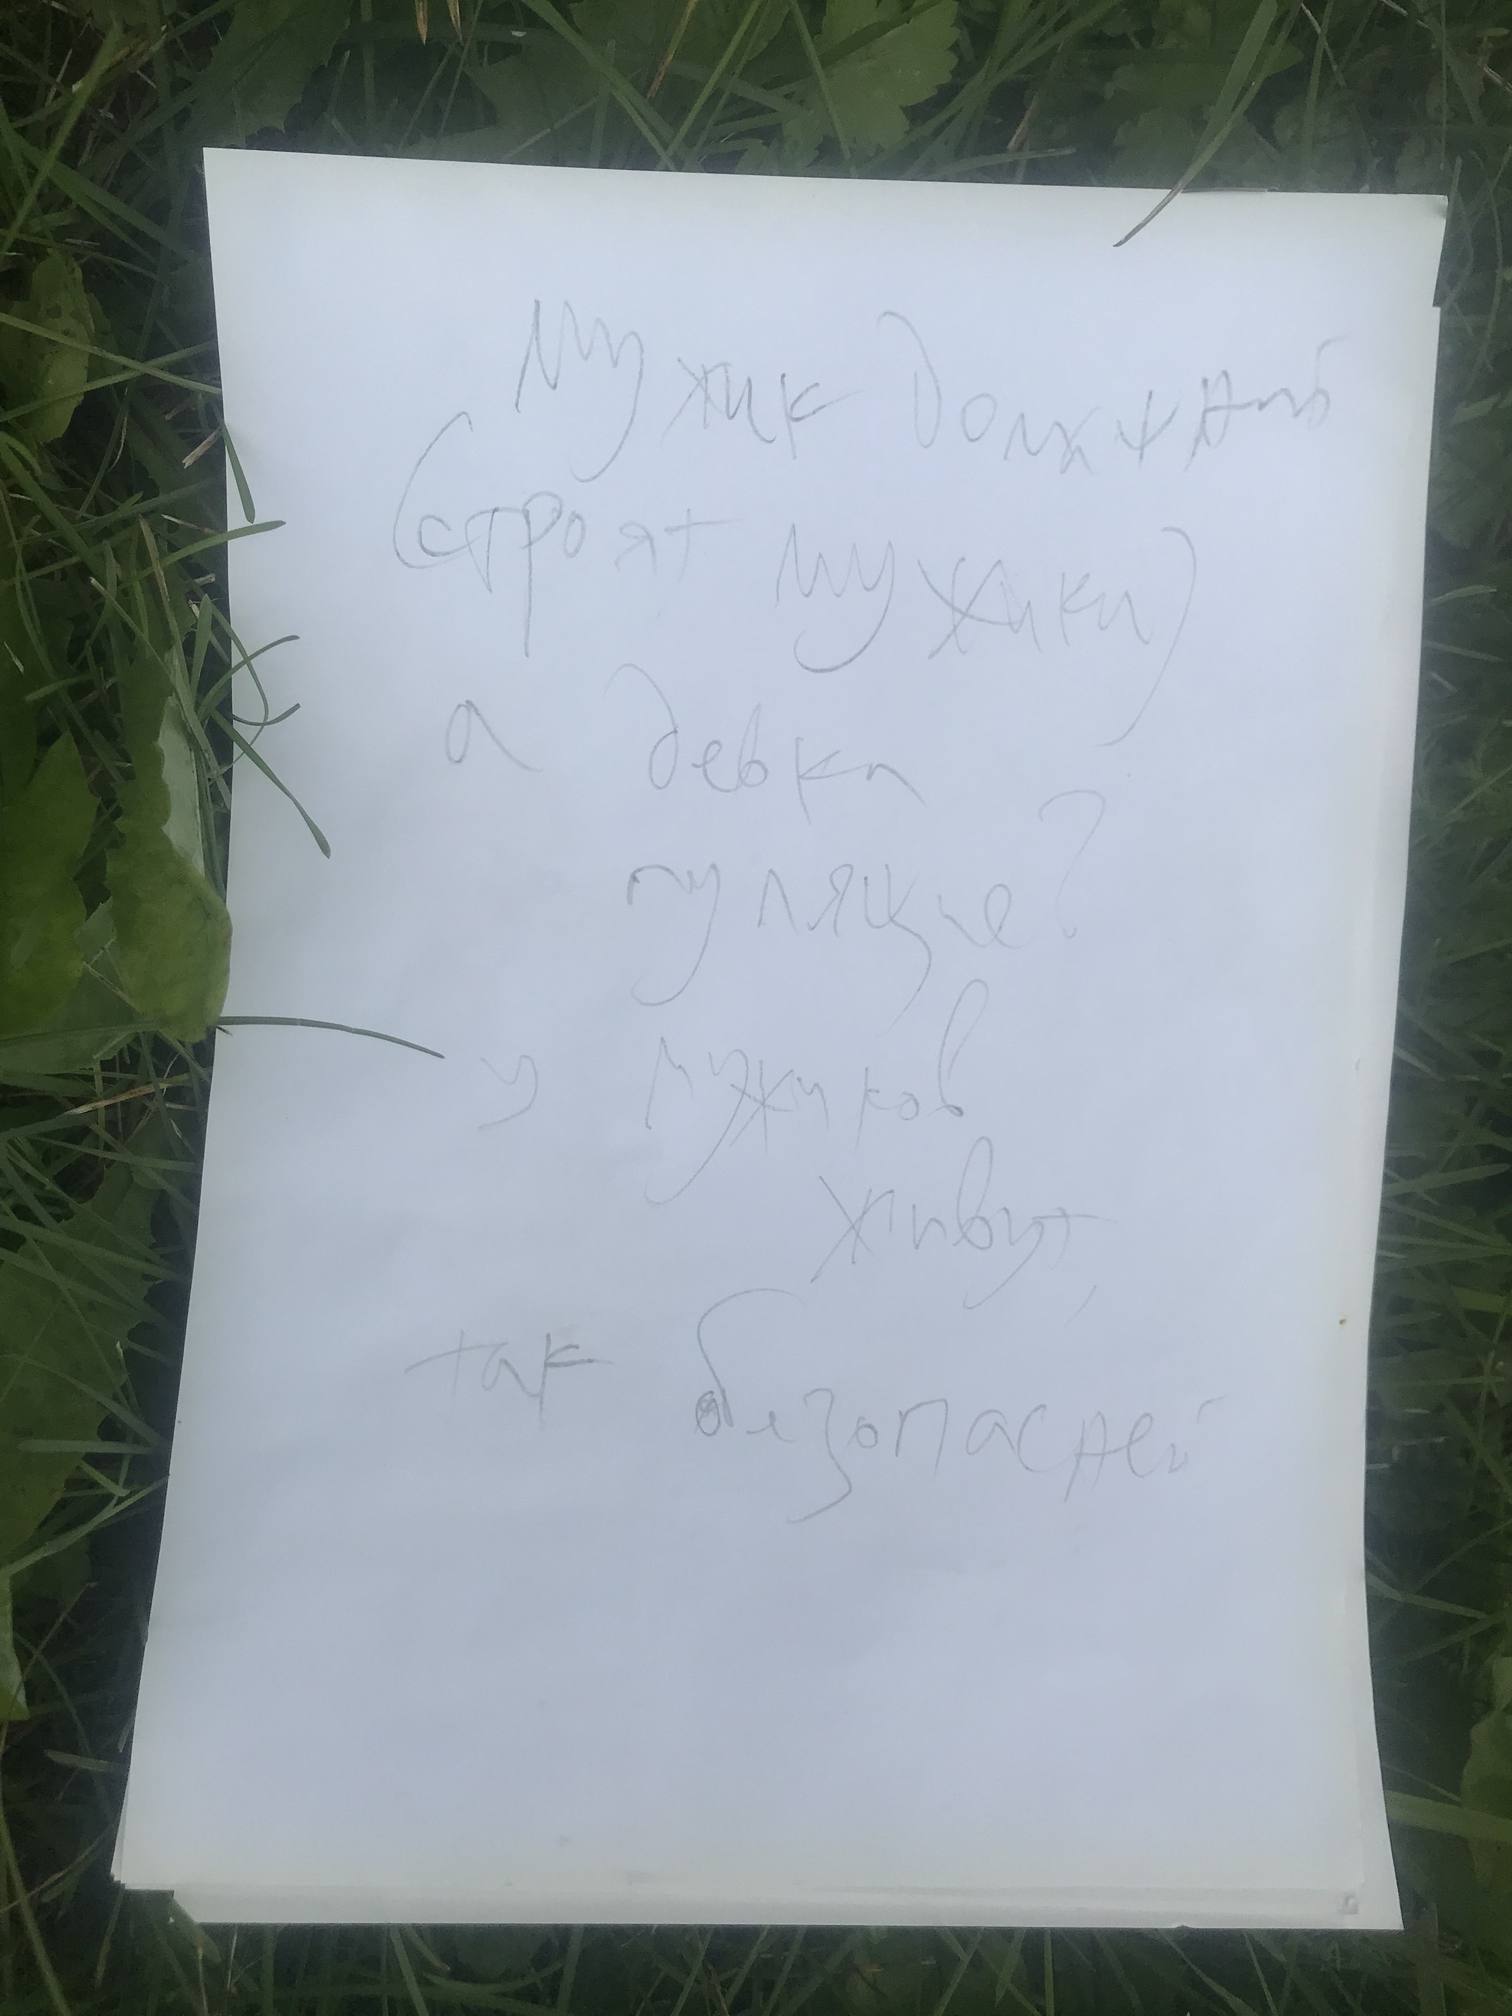 Мужик должный
(строят мужики)
а девки
гулящие?
у мужиков
живут,
так безопасней